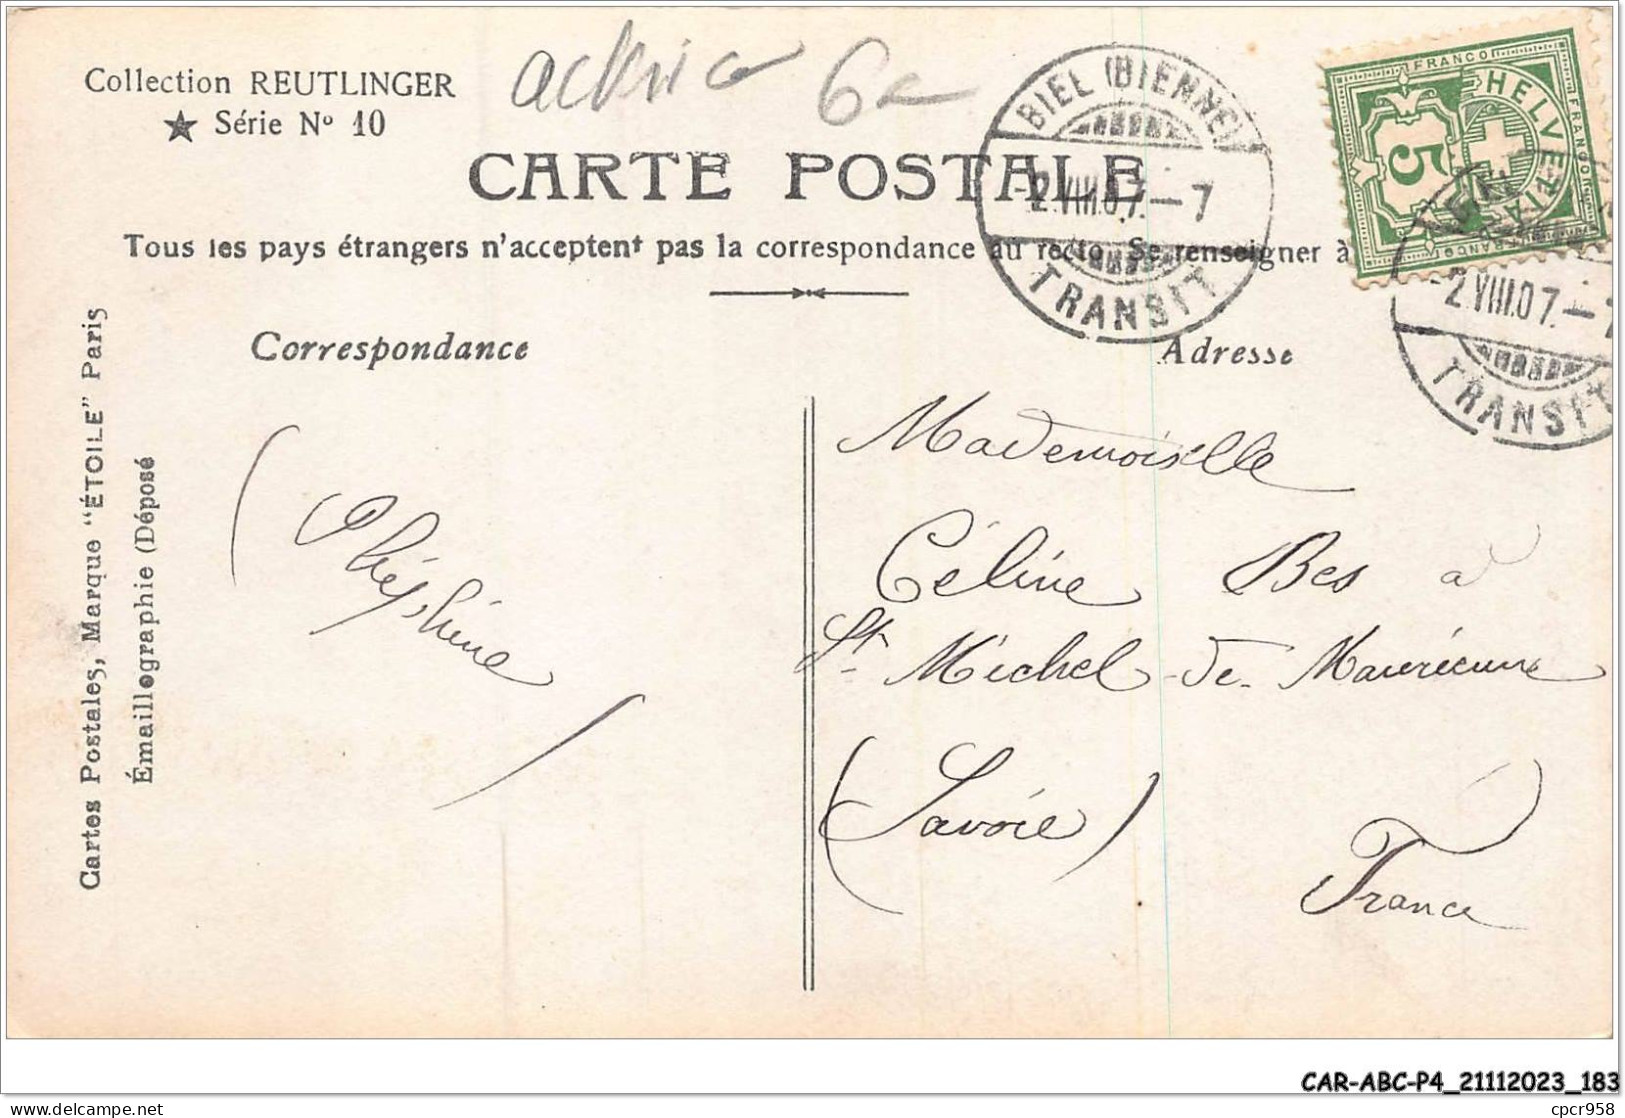 Collection REUTLINGER
★ Série Nº 10
actrice 6€
CARTE POSTALE
Tous les pays étrangers n'acceptent pas la correspondance au recto. Se renseigner à
BIEL (BIENNE)
-2.VIII.07.-7
TRANSIT
FRANCO
HELVETIA
FRANCO
5
-2.VIII.07.-7
TRANSIT
Correspondance
Adresse
Cartes Postales, Marque "ÉTOILE" Paris
Émaillographie (Déposé
Mademoiselle
Céline Bes a
St. Michel-de-Maurienne
(Savoie)
France
CAR-ABC-P4_21112023_183
delcampe.net
cpcr958